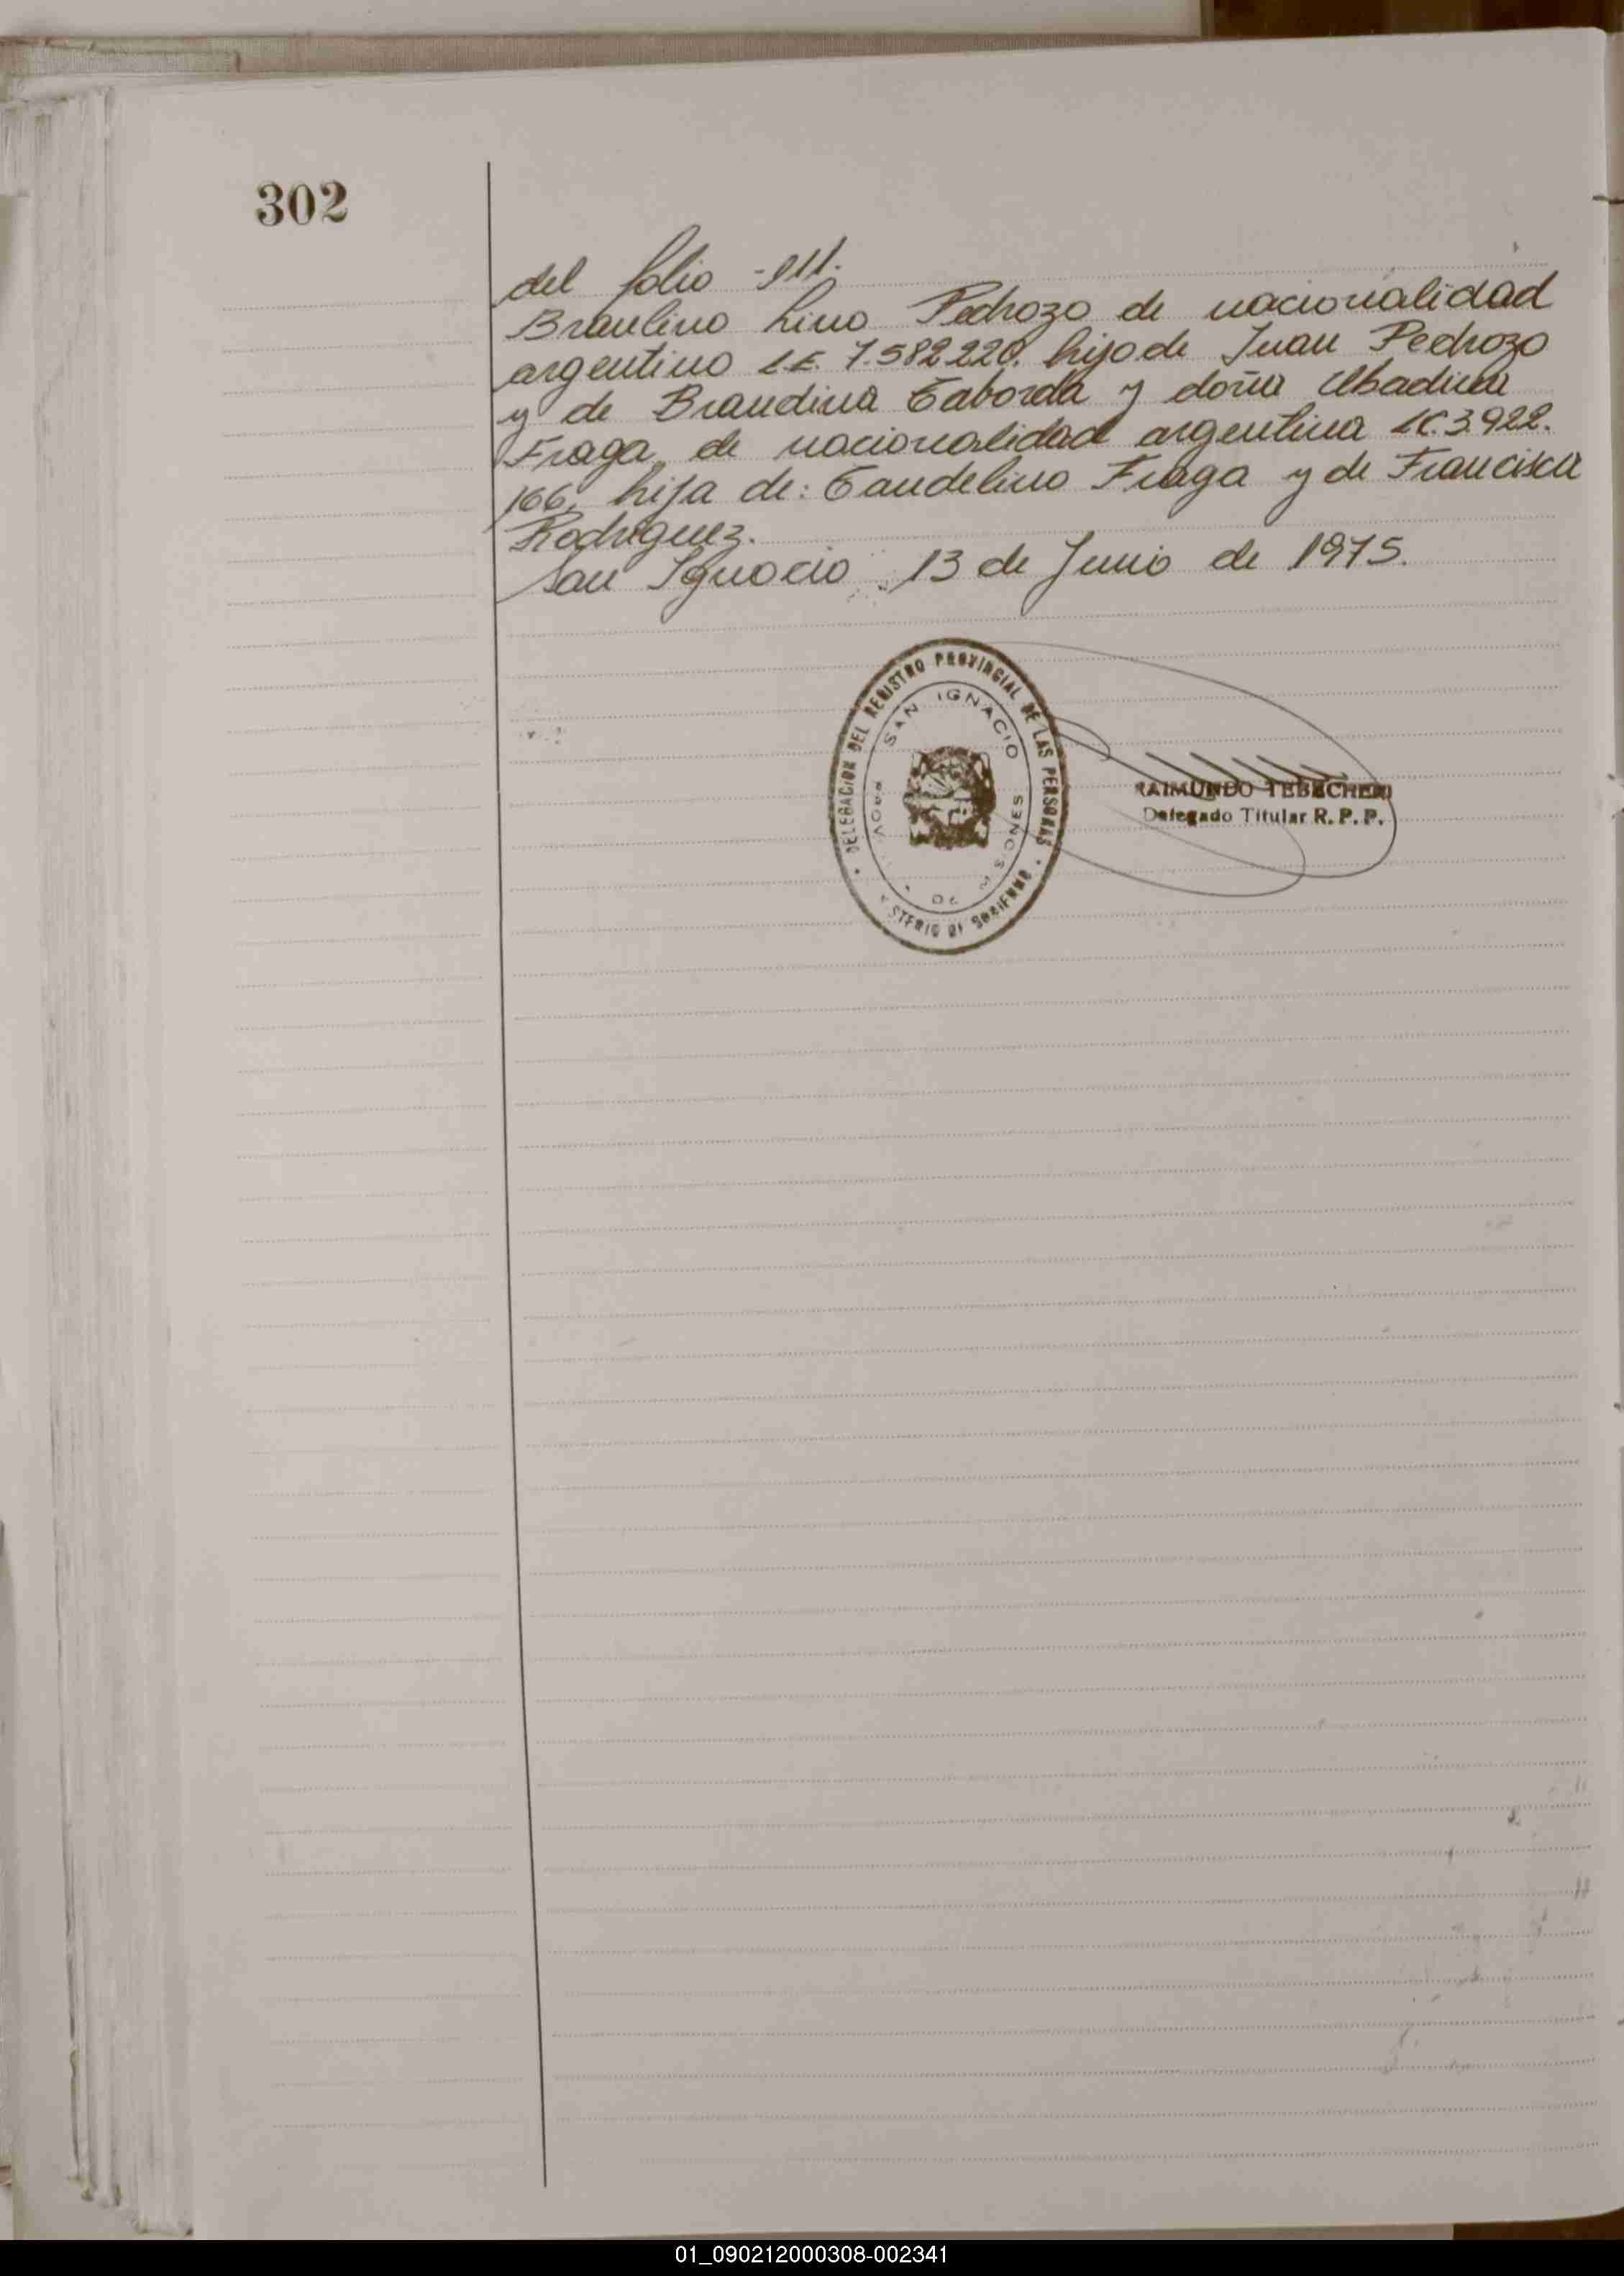 302
del folio -111.
Braulino Lino Pedrozo de nacionalidad
argentino L.E. 7.582.220. hijo de Juan Pedrozo
y de Brandina Taborda y doña Abadina
Fraga, de nacionalidad argentina LC. 3.922.
166, hija de: Candelino Fraga y de Francisca
Rodriguez.
San Ignacio, 13 de Junio de 1975.
DELEGACION DEL REGISTRO PROVINCIAL DE LAS PERSONAS
SAN IGNACIO
MISIONES
RAIMUNDO TEBECHERI
Delegado Titular R. P. P.
01_090212000308-002341